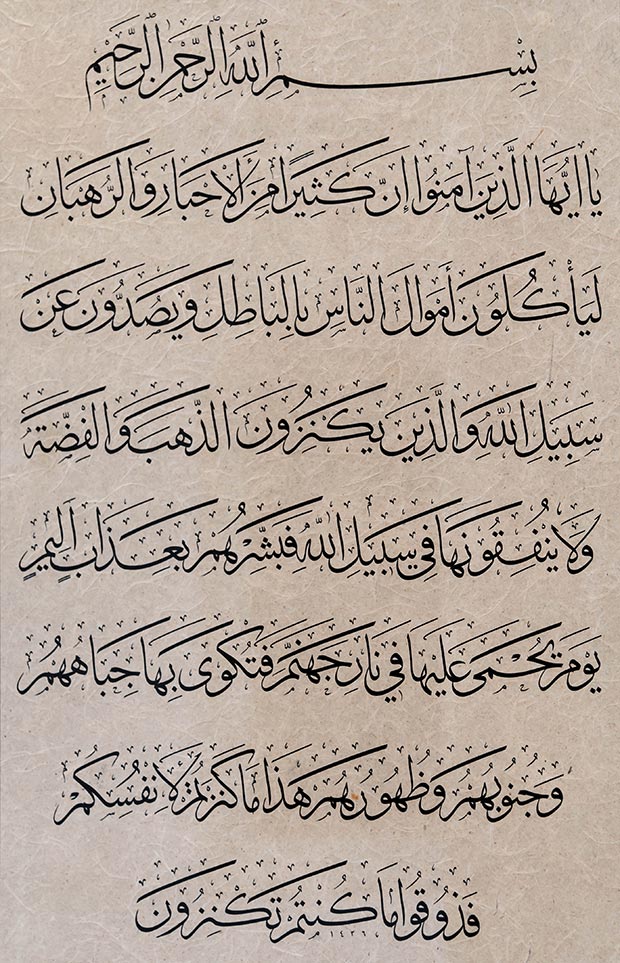 بِسْمِ اللَّهِ الرَّحْمَنِ الرَّحِيمِ
يَا أَيُّهَا الَّذِينَ آمَنُوا إِنَّ كَثِيرًا مِنَ الْأَحْبَارِ وَالرُّهْبَانِ
لَيَأْكُلُونَ أَمْوَالَ النَّاسِ بِالْبَاطِلِ وَيَصُدُّونَ عَنْ
سَبِيلِ اللَّهِ وَالَّذِينَ يَكْنِزُونَ الذَّهَبَ وَالْفِضَّةَ
وَلَا يُنْفِقُونَهَا فِي سَبِيلِ اللَّهِ فَبَشِّرْهُمْ بِعَذَابٍ أَلِيمٍ
يَوْمَ يُحْمَى عَلَيْهَا فِي نَارِ جَهَنَّمَ فَتُكْوَى بِهَا جِبَاهُهُمْ
وَجُنُوبُهُمْ وَظُهُورُهُمْ هَذَا مَا كَنَزْتُمْ لِأَنْفُسِكُمْ
فَذُوقُوا مَا كُنْتُمْ تَكْنِزُونَ
١٤٣٦